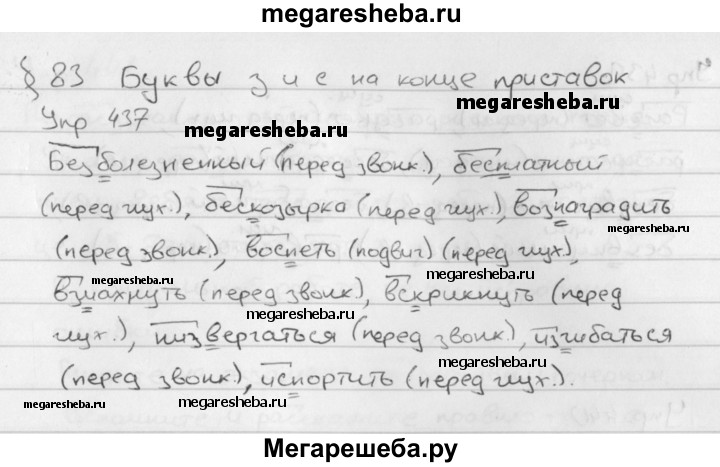 megaresheba.ru
§ 83 Буквы з и с на конце приставок
megaresheba.ru
Упр 437
megaresheba.ru
Безболезненный (перед звонк.), бесплатный
(перед глух.), бескозырка (перед глух.), вознаградить
(перед звонк.), воспеть (подвиг) (перед глух.),
megaresheba.ru
megaresheba.ru
взмахнуть (перед звонк.), вскрикнуть (перед
глух.), низвергаться (перед звонк.), изгибаться
megaresheba.ru
megaresheba.ru
(перед звонк.), испортить (перед глух.).
megaresheba.ru
megaresheba.ru
megaresheba.ru
Мегарешеба.ру